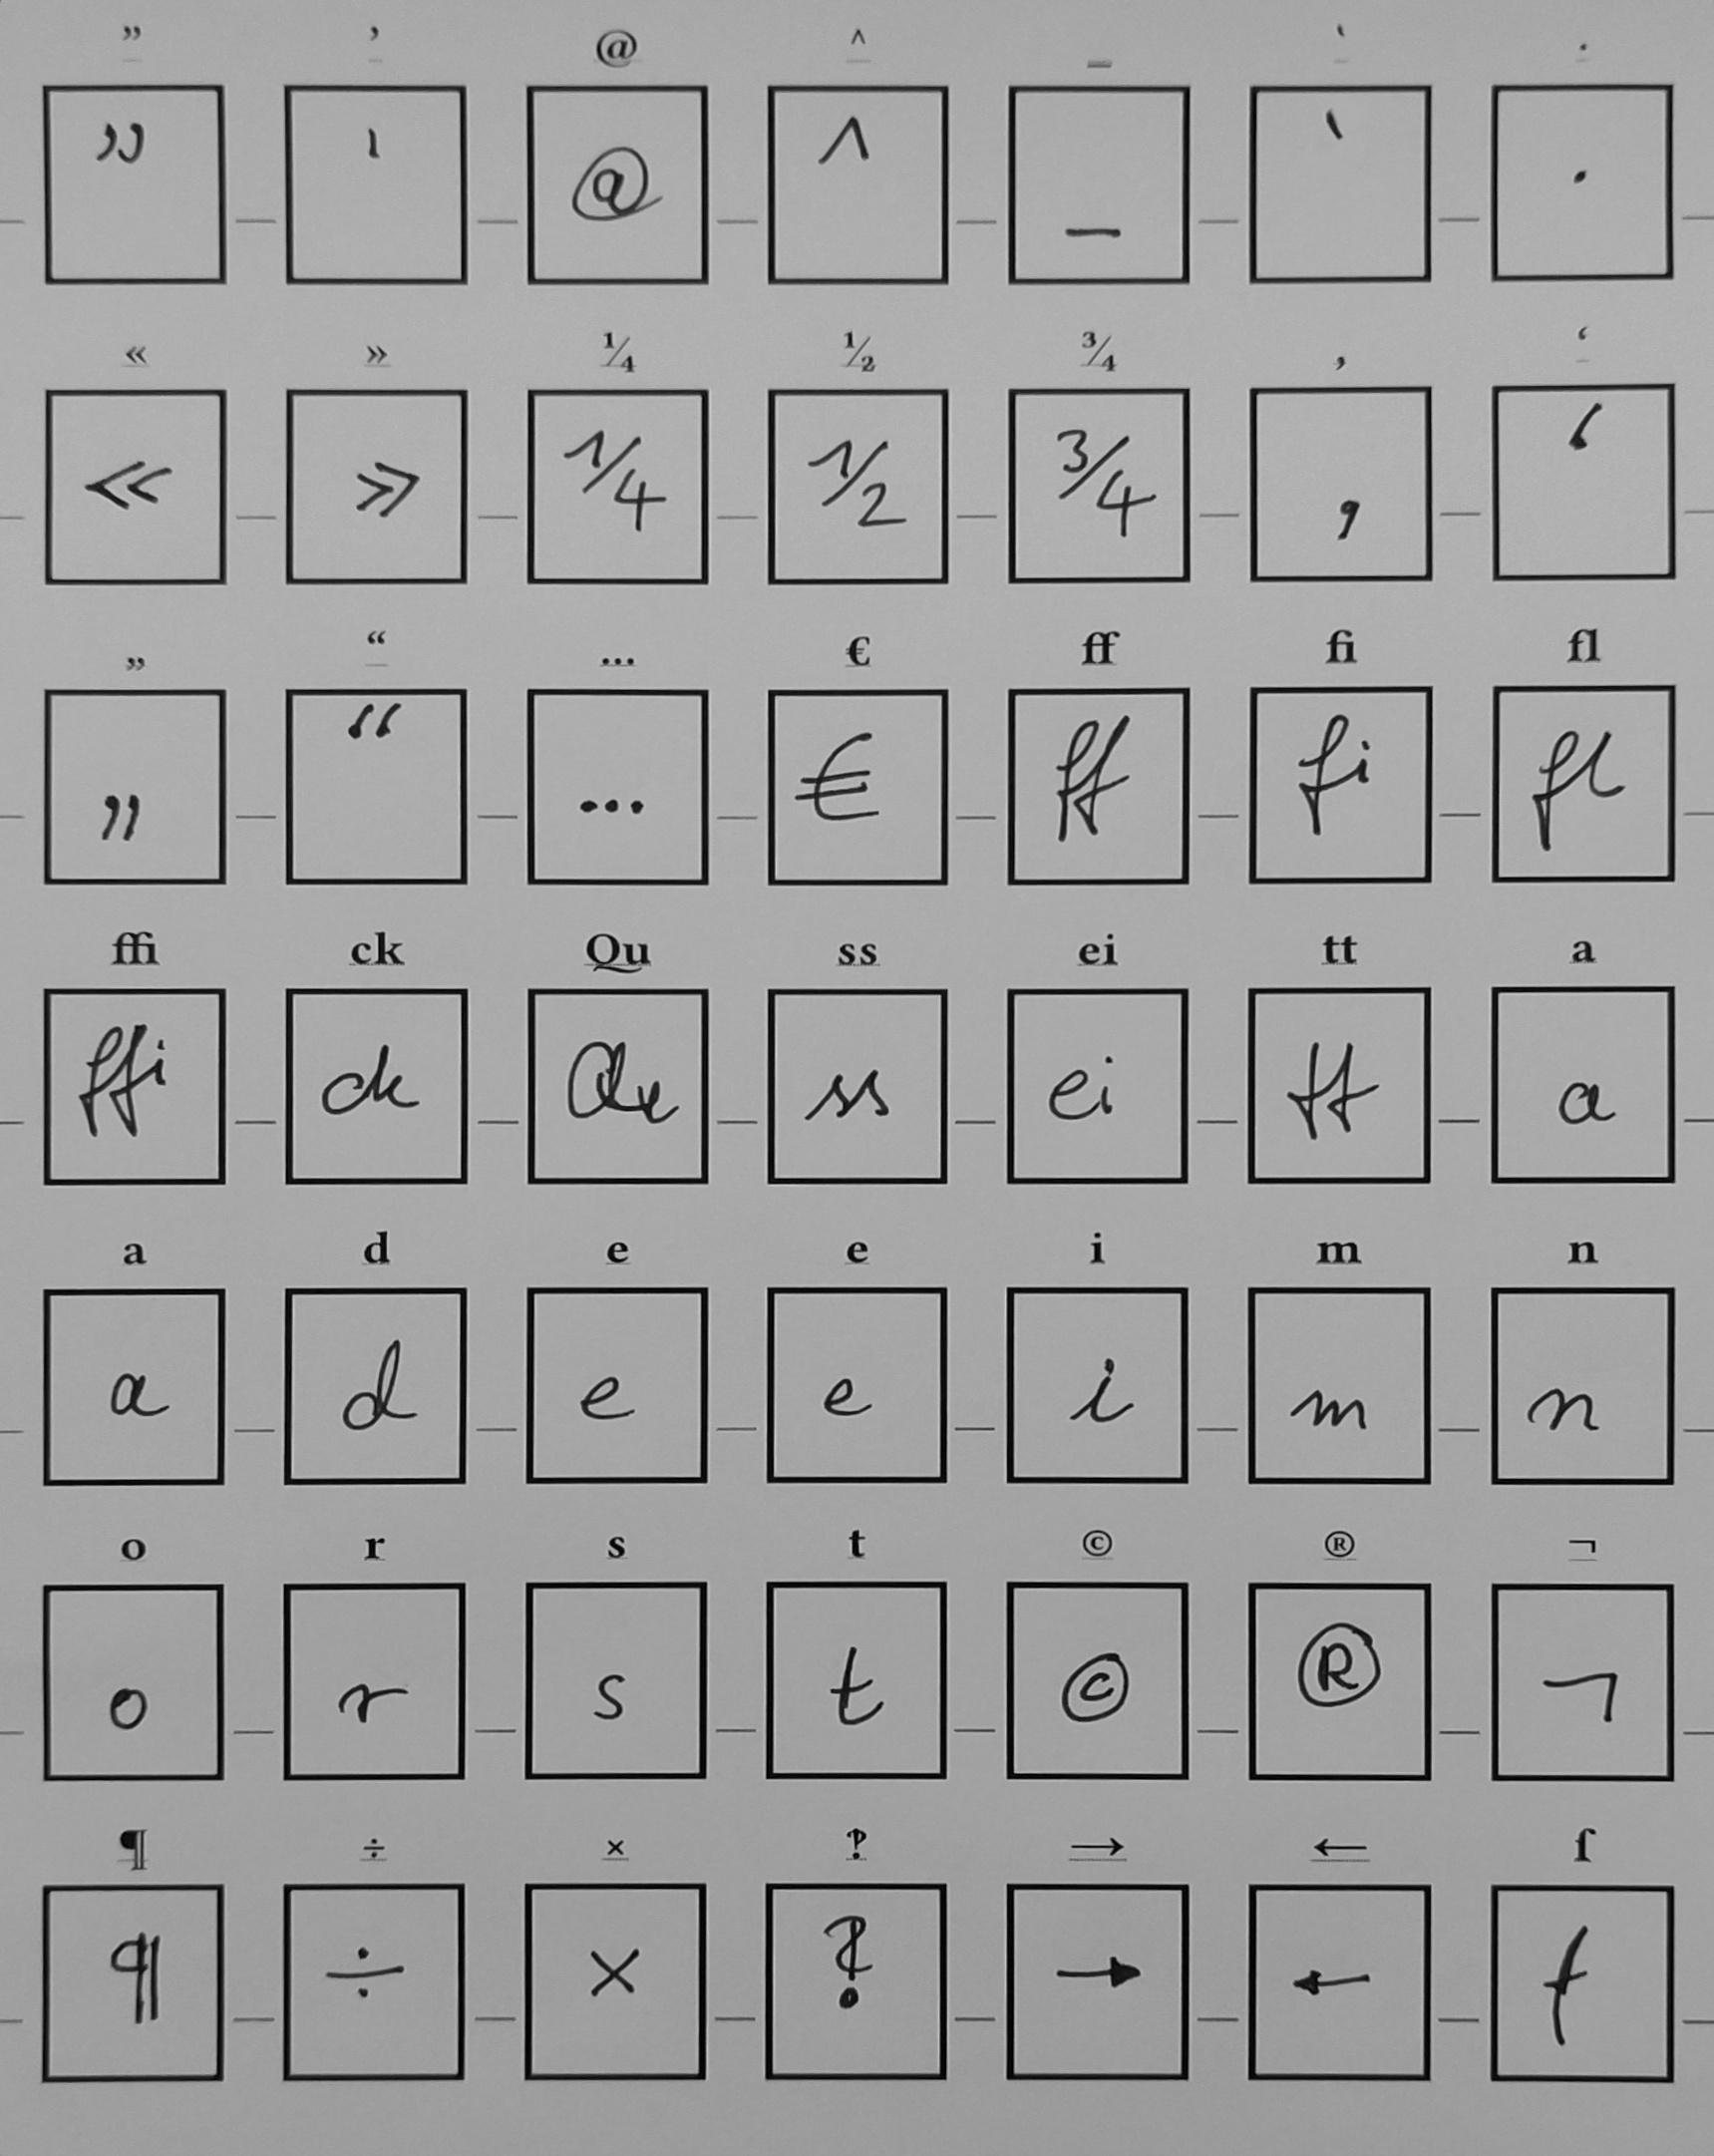 ” ’ @ ^ _ ` ·
” ' @ ^ _ ` ·
« » ¼ ½ ¾ ‚ ‘
« » ¼ ½ ¾ , ‘
„ “ … € ff fi fl
„ “ … € ff fi fl
ffi ck Qu ss ei tt a
ffi ck Qu ss ei tt a
a d e e i m n
a d e e i m n
o r s t © ® ¬
o r s t © ® ¬
¶ ÷ × ‽ → ← ſ
¶ ÷ × ‽ → ← f